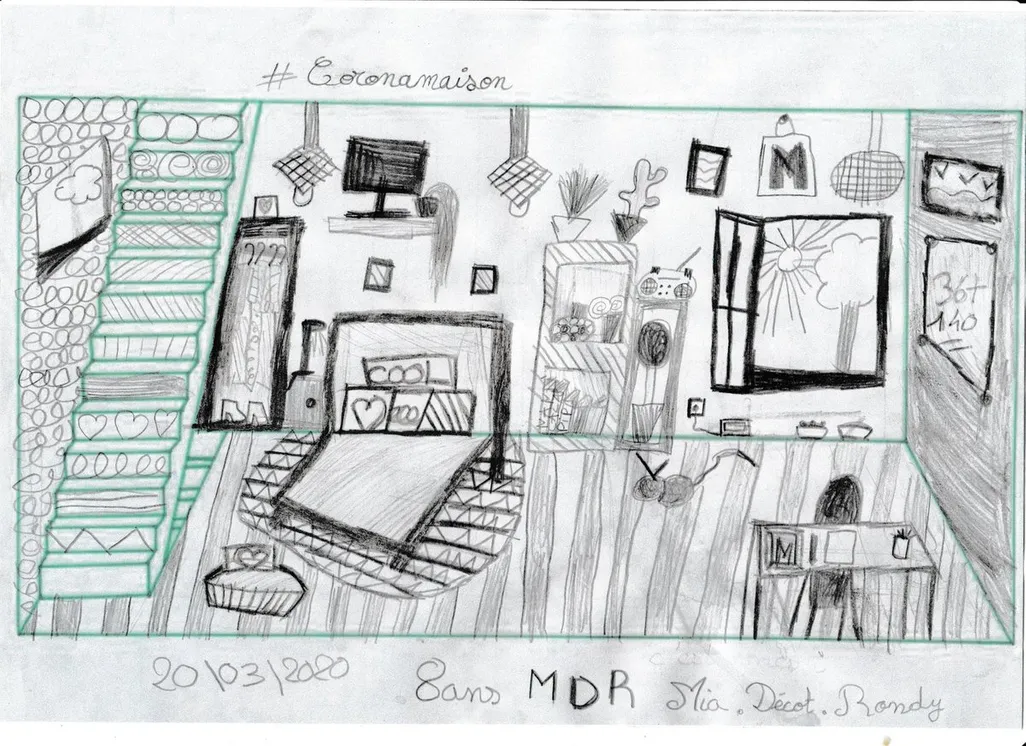 # Coronamaison
M
36+
140
COOL
M
20\03\2020 8ans MDR Mia . Décot . Rondy